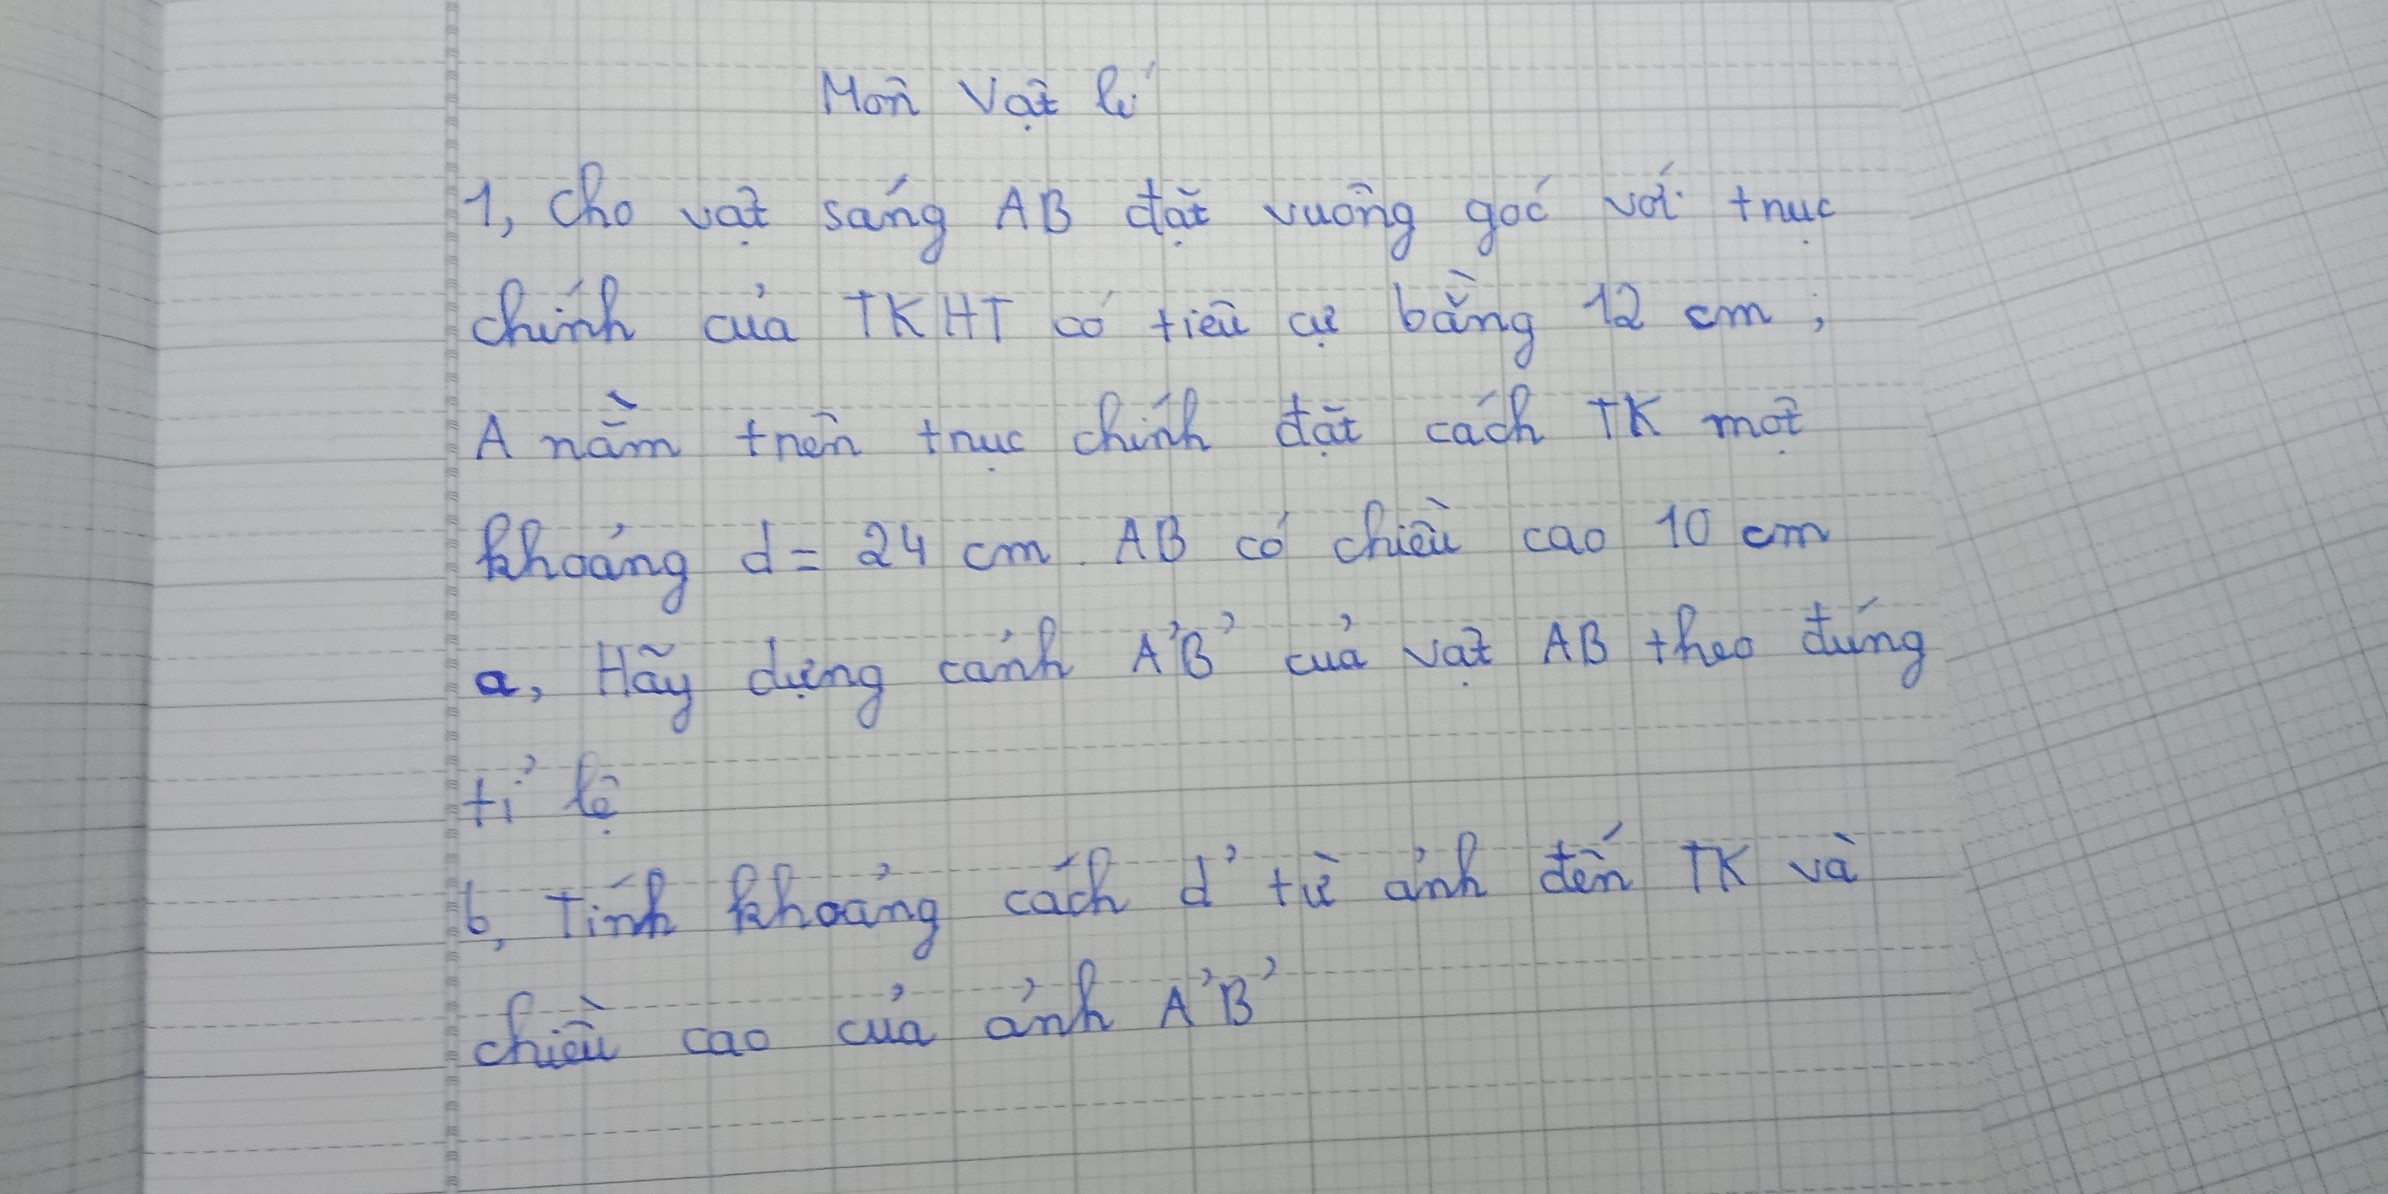 Môn Vật lí
1, Cho vật sáng AB đặt vuông góc với trục
chính của TKHT có tiêu cự bằng 12 cm,
A nằm trên trục chính đặt cách TK một
khoảng d = 24 cm. AB có chiều cao 10 cm
a, Hãy dựng cảnh A'B' của vật AB theo đúng
tỉ lệ
b, Tính khoảng cách d' từ ảnh đến TK và
chiều cao của ảnh A'B'